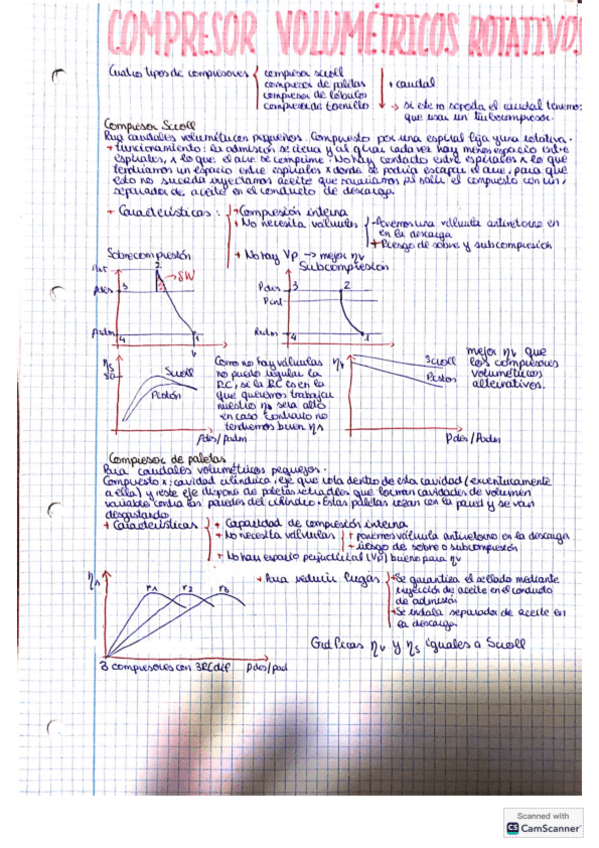 COMPRESOR VOLUMÉTRICOS ROTATIVOS
Cuatro tipos de compresores
compresor scroll
compresor de paletas
compresor de lóbulos
compresor de tornillo
+ caudal
→ si este no soporta el caudal tenemos
que usar un turbocompresor.
Compresor Scroll
Para caudales volumétricos pequeños. Compuesto por una espiral fija y una rotativa.
+ Funcionamiento: la admisión se cierra y al girar cada vez hay menos espacio entre
espirales, x lo que el aire se comprime. No hay contacto entre espirales x lo que
tendríamos un espacio entre espirales x donde se podría escapar el aire, para que
esto no suceda inyectamos aceite que sacaríamos al salir el compuesto con un
separador de aceite en el conducto de descarga.
+ Características:
+ Compresión interna
+ No necesita válvulas
- Ponemos una válvula antiretorno en
en la descarga
+ Riesgo de sobre y subcompresión
+ No hay Vp → mejor ηv
Sobrecompresión
Subcompresión
Pint
Pdes
Padm
2
3
→ δW
4
1
V
Pdes
Pint
Padm
3
2
4
1
ηs
80
Scroll
Pistón
Pdes/Padm
Como no hay válvulas
no puedo regular la
RC, si la RC es en la
que queremos trabajar
nuestro ηs será alto
en caso contrario no
tendremos buen ηs
ηv
Scroll
Piston
Pdes/Padm
mejor ηv que
los compresores
volumétricos
alternativos.
Compresor de paletas
Para caudales volumétricos pequeños.
Compuesto x: cavidad cilíndrica, eje que rota dentro de esta cavidad (excéntricamente
a ella) y este eje dispone de paletas retráctiles que forman cavidades de volumen
variable contra las paredes del cilindro. Estas paletas rozan con la pared y se van
desgastando.
+ Características
+ Capacidad de compresión interna
+ No necesita válvulas
+ ponemos válvula antiretorno en la descarga
- riesgo de sobre o subcompresión
+ No hay espacio perjudicial (Vp) bueno para ηv
ηs
r1 r2 r3
3 compresores con 3RC dif
Pdes/Pad
+ Para reducir fugas
+ Se garantiza el sellado mediante
inyección de aceite en el conducto
de admisión
+ Se instala separador de aceite en
la descarga.
Gráficas ηv y ηs iguales a Scroll
Scanned with
CS CamScanner